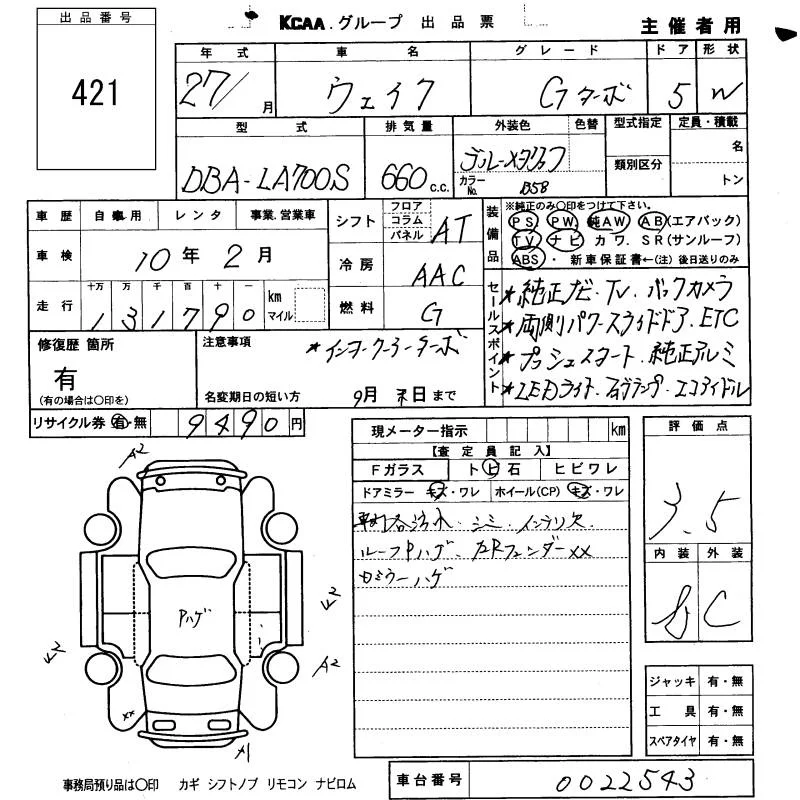 出品番号
421
KCAA.グループ 出品票
主催者用
年式 車名 グレード ドア 形状
27/ 月 ウェイク Gターボ 5 W
型式 排気量 外装色 色替 型式指定 定員・積載
DBA-LA700S 660 c.c. ブルーメタリック
カラーNo. B58
類別区分
名
トン
車歴 自家用 レンタ 事業.営業車
車検 10年 2月
走行 十万 万 千 百 十 一
131790 km マイル
シフト フロア コラム パネル AT
冷房 AAC
燃料 G
装備品
※純正のみ○印をつけて下さい。
PS PW 純AW AB(エアバック)
TV ナビ カワ. SR(サンルーフ)
ABS ・ 新車保証書←(注) 後日送りのみ
セールスポイント
★純正ナビ・TV・バックカメラ
★両側パワースライドドア・ETC
★プッシュスタート・純正アルミ
★LEDライト・フォグランプ・エコアイドル
修復歴 箇所
有
(有の場合は○印を)
注意事項
★インタークーラーターボ
名変期日の短い方 9月末日まで
リサイクル券 有・無 9490円
現メーター指示 km
【査定員記入】
Fガラス トビ石 ヒビワレ
ドアミラー キズ・ワレ ホイール(CP) キズ・ワレ
ルーフPハゲ、左Rフェンダーxx
ミラーハゲ
評価点
3.5
内装 外装
C
A2
Pハゲ
A2
xx
ジャッキ 有・無
工具 有・無
スペアタイヤ 有・無
事務局預り品は○印 カギ シフトノブ リモコン ナビロム
車台番号 0022543